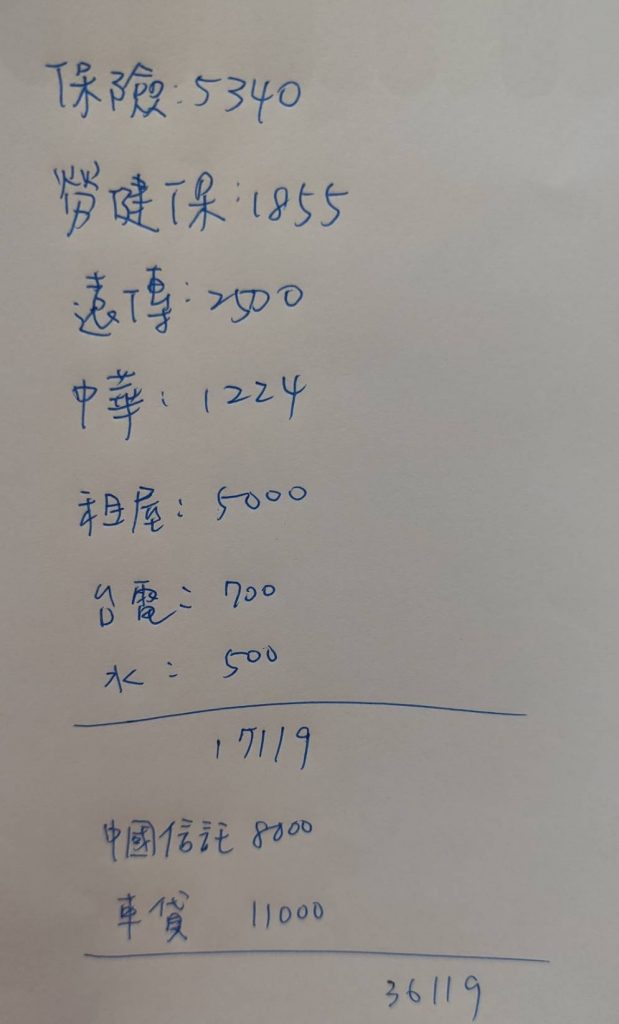 保險:5340
勞健保:1855
遠傳:2500
中華:1224
租屋:5000
台電:700
水:500
17119
中國信託 8000
車貸 11000
36119